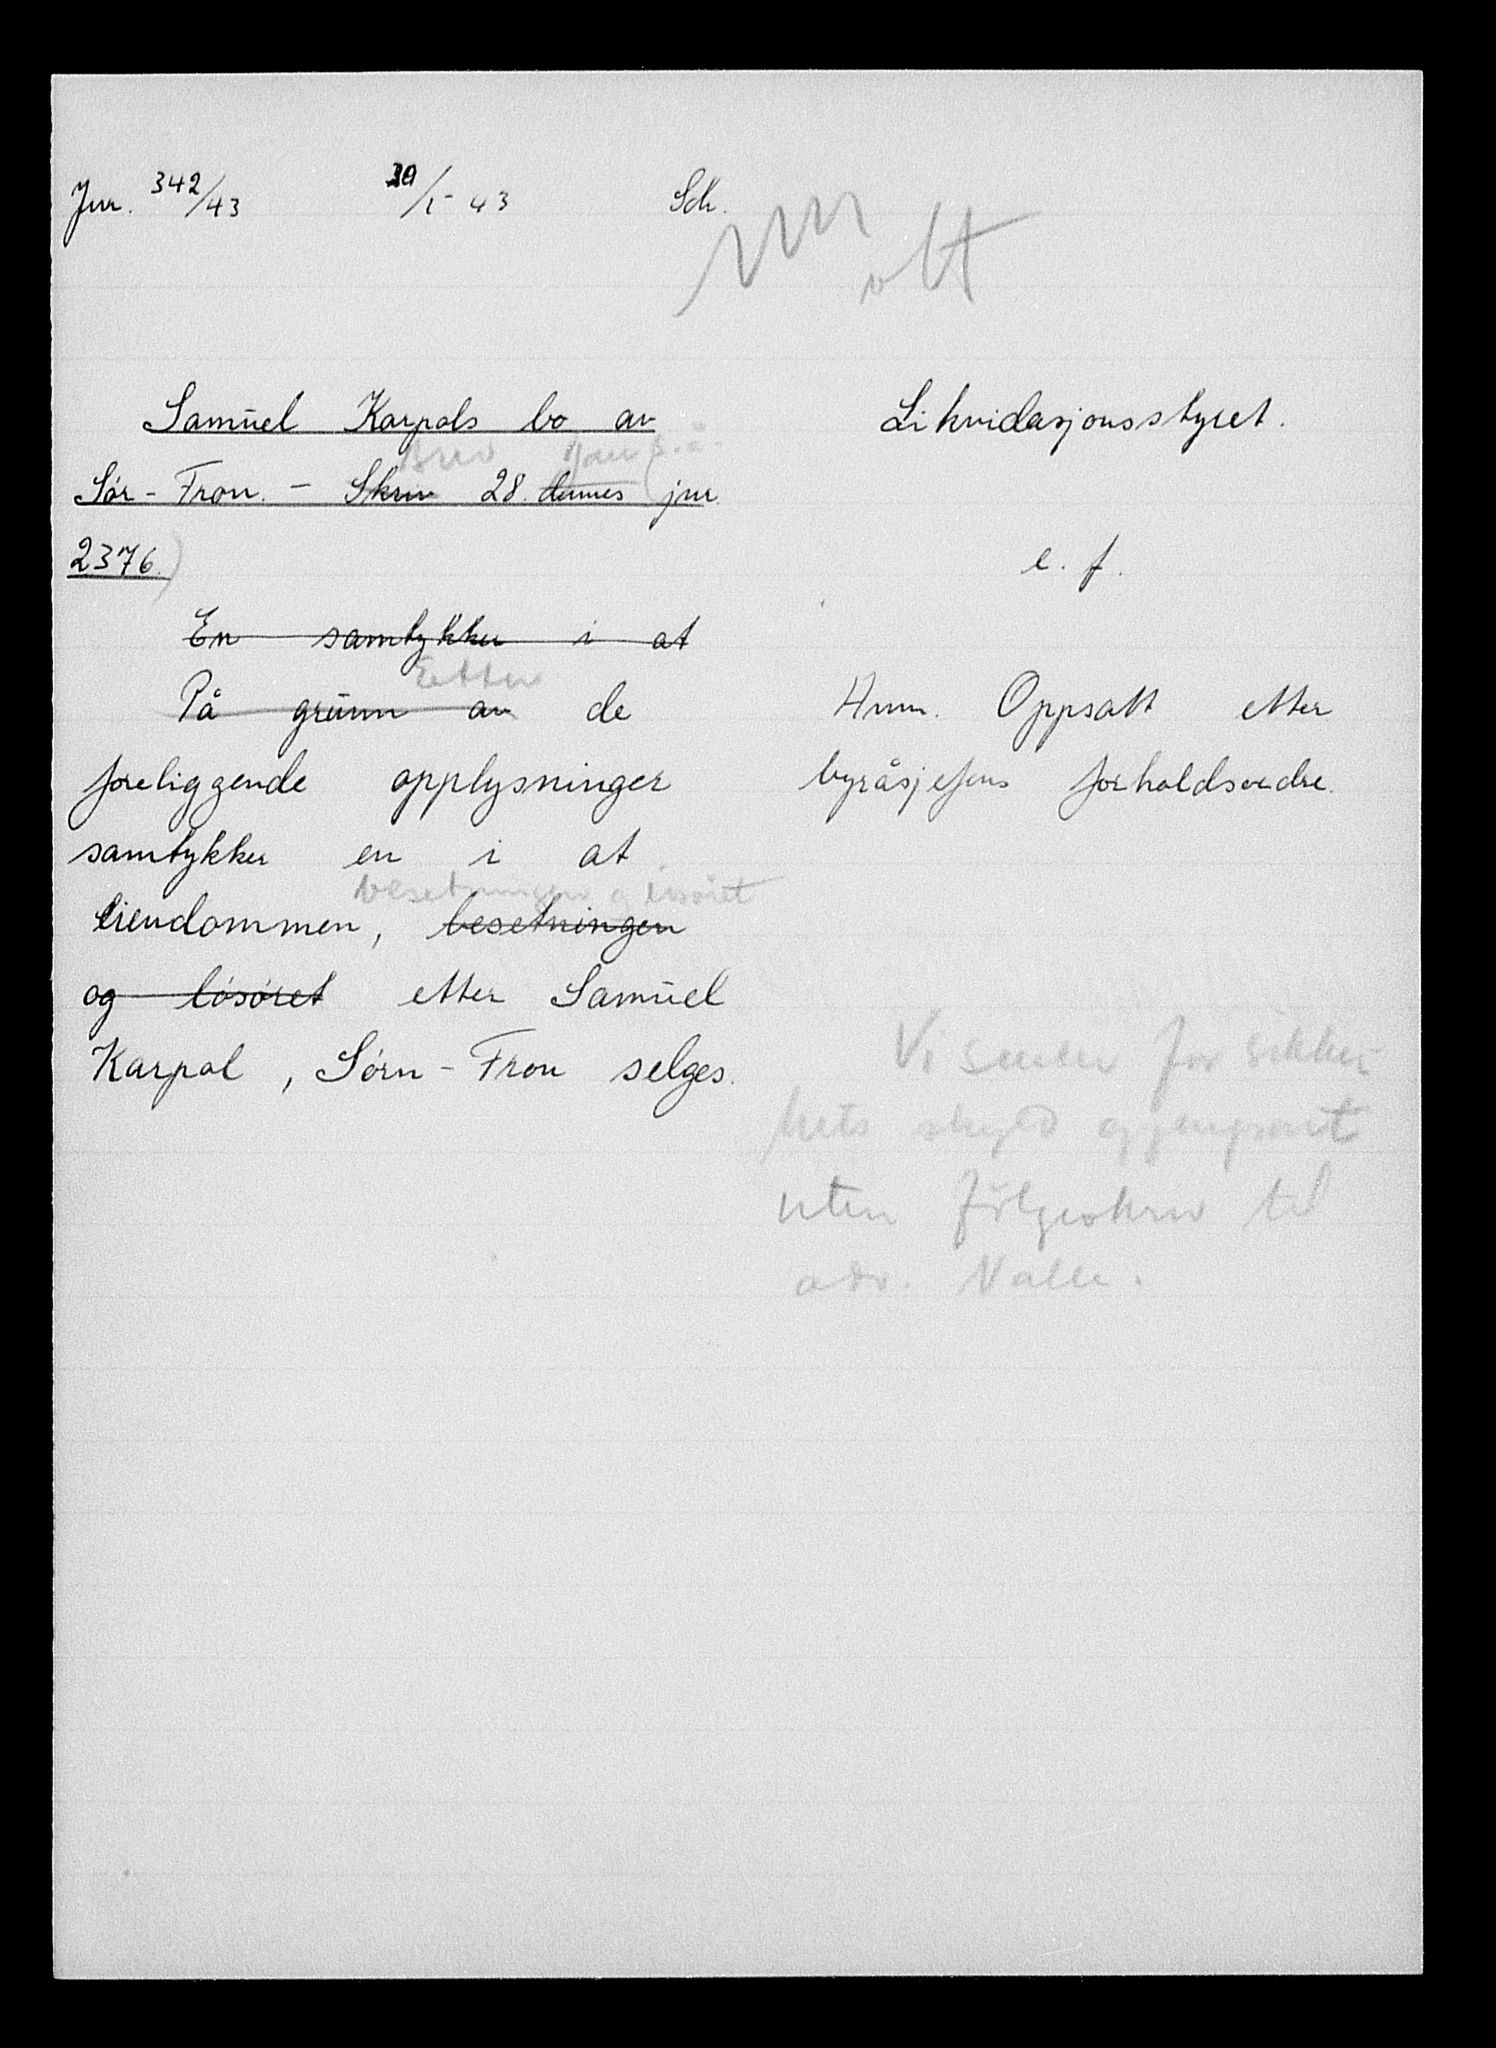 Jnr. 342/43 30/1-43 Sch.
Samuel Karpols bo av
Brev
Sør-Fron. - Skriv 28. dennes (jnr.
2376.)
En samtykker i at
Etter
På grunn av de
foreliggende opplysninger
samtykker en i at
besetningen og løsøret
eiendommen, besetningen
og løsøret etter Samuel
Karpol, Sørn-Fron selges.
Likvidasjonsstyret.
e. f.
Anm. Oppsatt etter
byråsjefens forholdsordre.
Vi sender for sikker-
hets skyld gjenpart
uten følgeskriv til
adv. Valle.